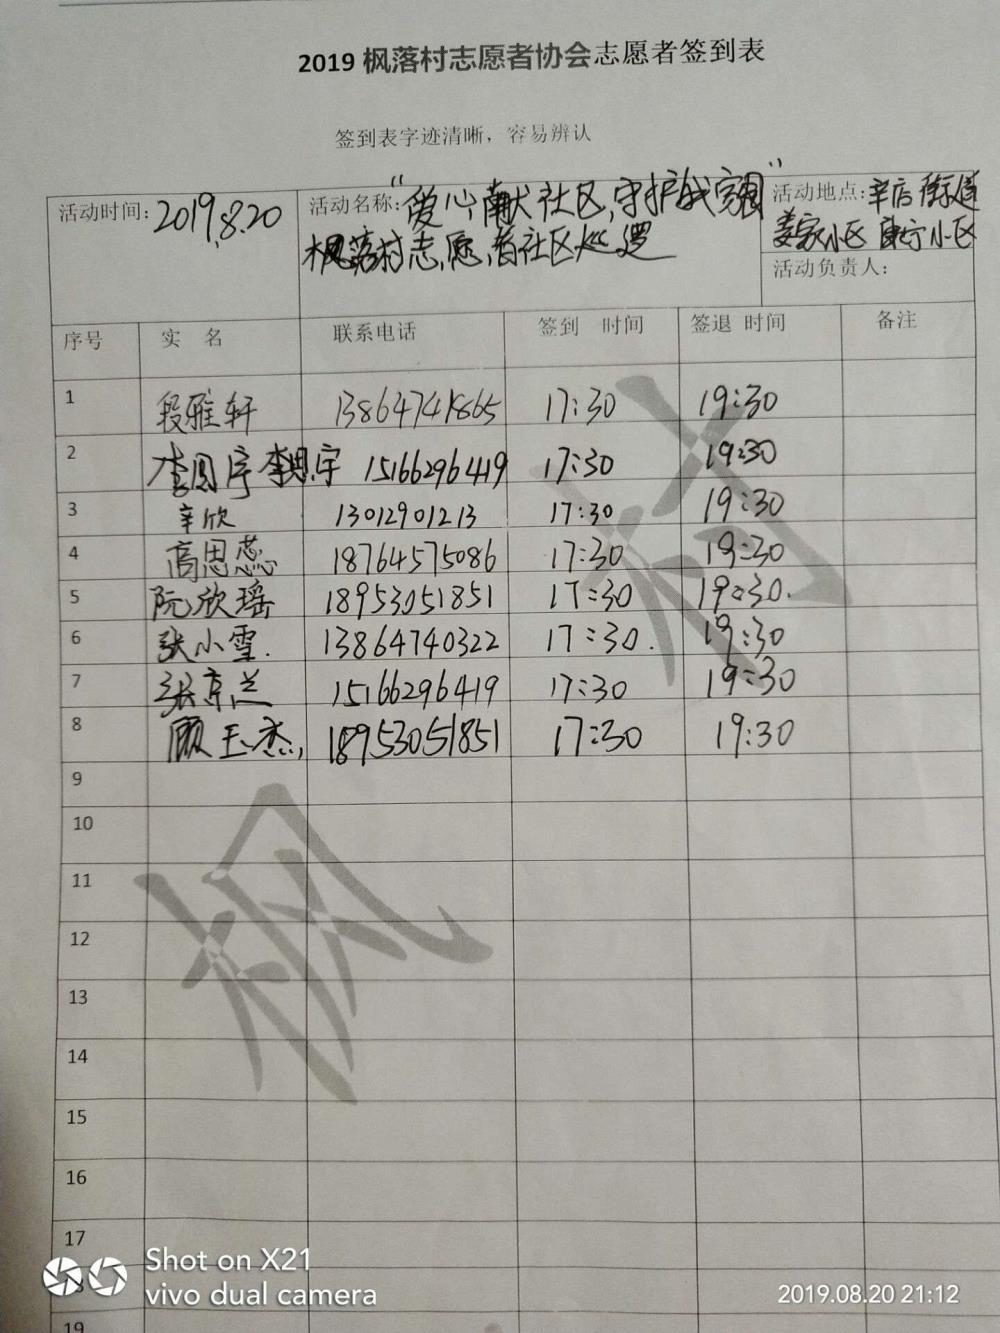 2019 枫落村志愿者协会志愿者签到表
签到表字迹清晰，容易辨认
活动时间：2019.8.20
活动名称：“爱心献社区，守护我家园”
枫落村志愿者社区巡逻
活动地点：辛店街道
姜家小区 康宁小区
活动负责人：
序号 实 名 联系电话 签到 时间 签退 时间 备注
1 段雅轩 13864741865 17:30 19:30
2 李思宇 15166296419 17:30 19:30
3 辛欣 13012901213 17:30 19:30
4 高思蕊 18764575086 17:30 19:30
5 阮欣瑶 18953051851 17:30 19:30.
6 张小雪. 13864740322 17:30. 19:30
7 张京兰 15166296419 17:30 19:30
8 顾玉杰, 18953051851 17:30 19:30
9
10
11
12
13
14
15
16
17
19
枫
村
Shot on X21
vivo dual camera
2019.08.20 21:12